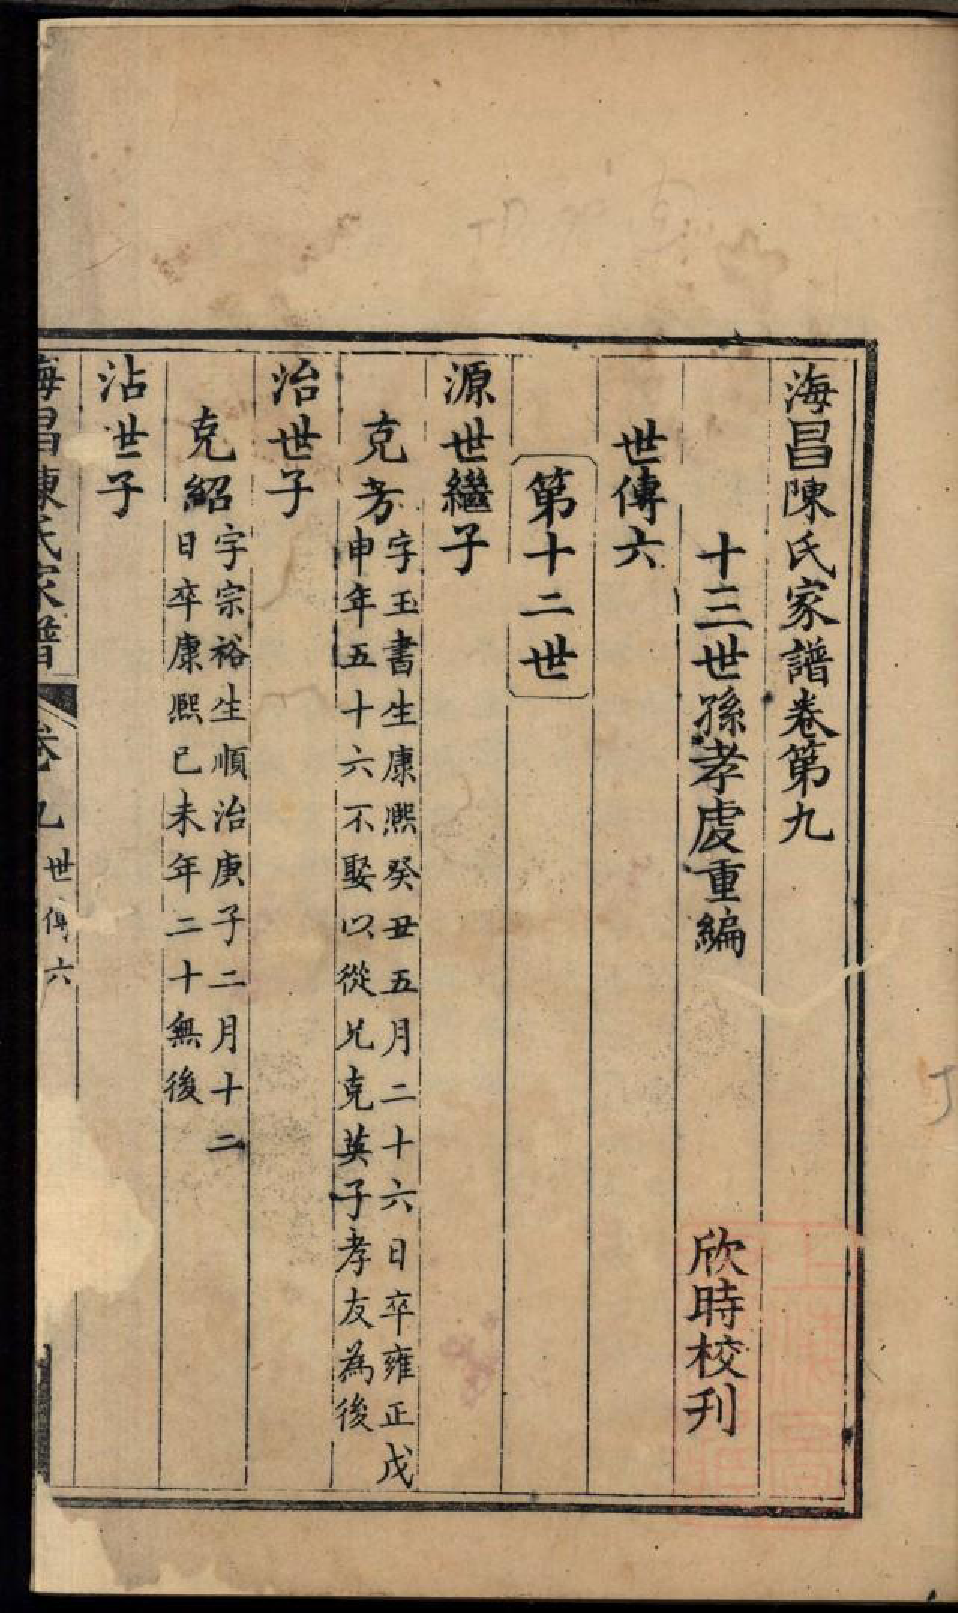 海昌陳氏家譜卷第九
十三世孫孝虔重編 欣時校刋
世傳六
第十二世
源世繼子
克芳
字玉書生康熙癸丑五月二十六日卒雍正戊
申年五十六不娶以從兄克英子孝友為後
治世子
克紹
字宗裕生順治庚子二月十二
日卒康熙己未年二十無後
沾世子
海昌陳氏家譜 卷九 世傳六